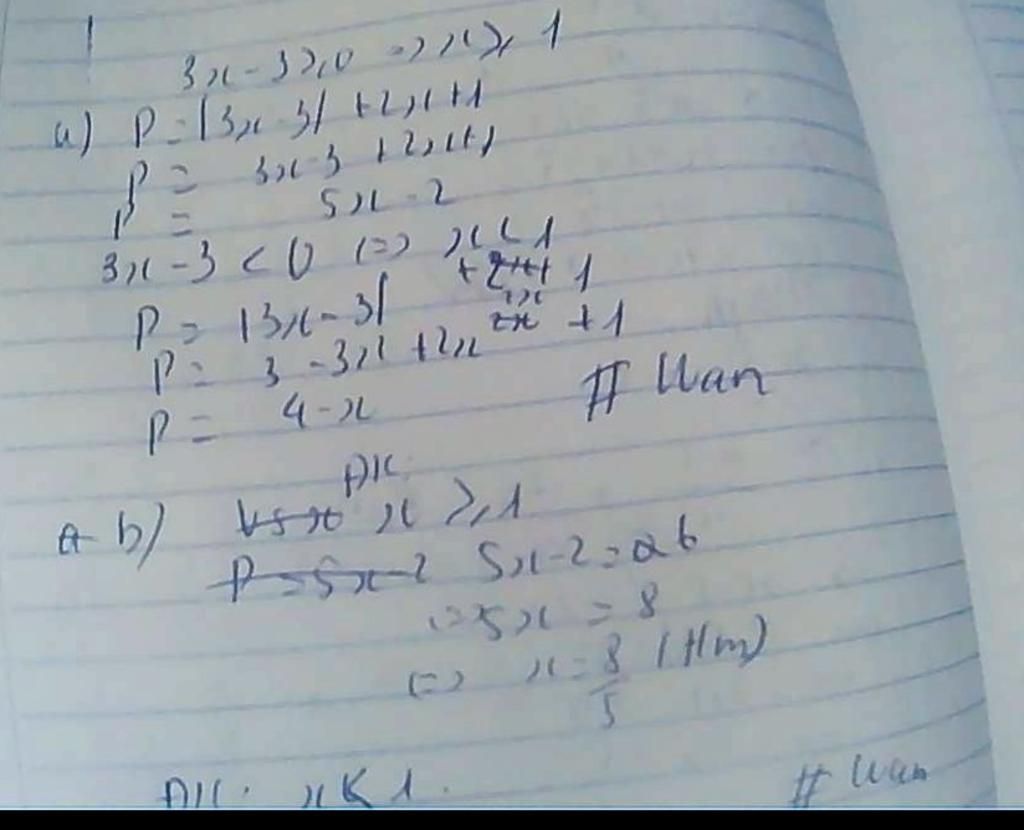 1
3x-3≥0 => x≥1
a) P=|3x-3| +2x+1
P= 3x-3 +2x+1
P= 5x-2
3x-3<0 <=> x<1
P= |3x-3| +2x+1
P= 3-3x+2x +1
P= 4-x
# Wan
ĐK:
b) x≥1
P=5x-2 5x-2=6
<=> 5x=8
<=> x=8/5 (t/m)
ĐK: x<1
# Wan